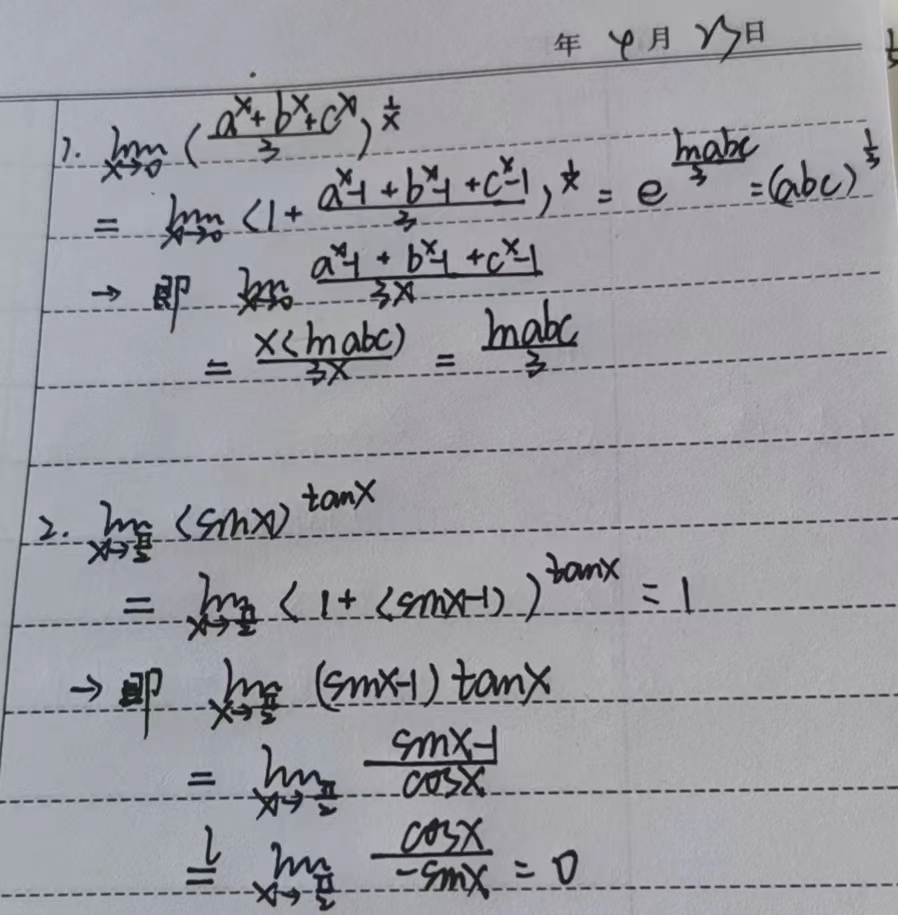 年 4月 23日
1. lim x→0 (a^x+b^x+c^x/3)^1/x
= lim x→0 (1+ a^x-1+b^x-1+c^x-1/3)^1/x = e^lnabc/3 =(abc)^1/3
→ 即 lim x→0 a^x-1+b^x-1+c^x-1/3x
= x(lnabc)/3x = lnabc/3
2. lim x→π/2 (sinx)^tanx
= lim x→π/2 (1+(sinx-1))^tanx = 1
→ 即 lim x→π/2 (sinx-1) tanx
= lim x→π/2 sinx-1/cosx
l= lim x→π/2 cosx/-sinx = 0